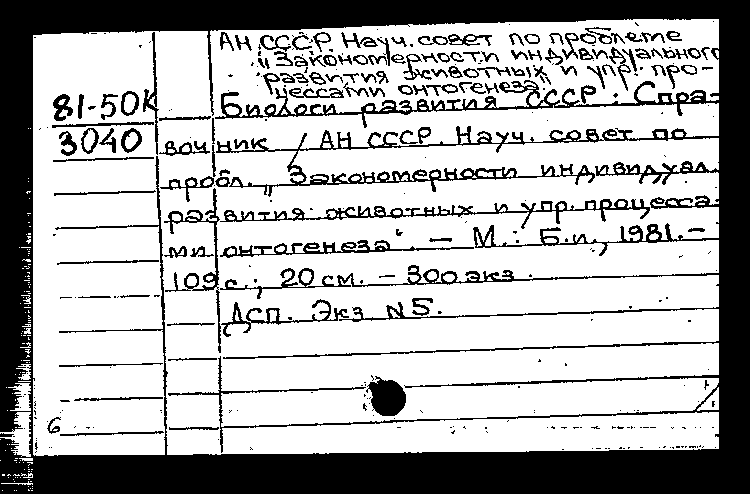 АН СССР. Науч. совет по проблеме
"Закономерности индивидуального
развития животных и упр. про-
цессами онтогенеза"
81-50К Биологи развития СССР : Спра-
3040 вочник / АН СССР. Науч. совет по
пробл. "Закономерности индивидуал.
развития животных и упр. процесса-
ми онтогенеза". – М.: Б.и., 1981. –
109 с.; 20 см. – 300 экз.
Дсп. Экз N5.
6